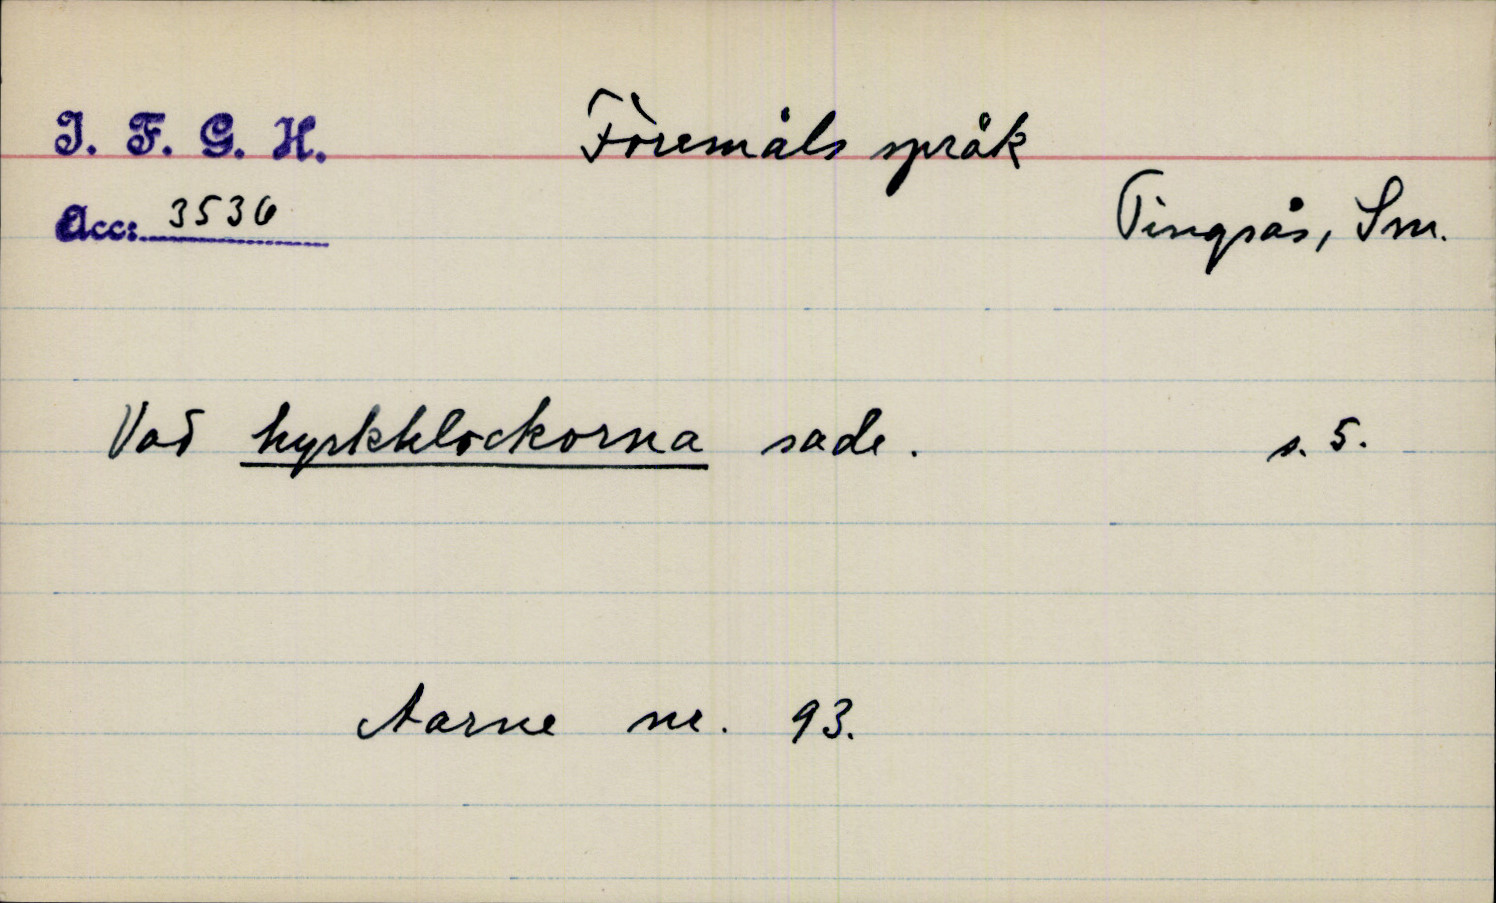 I. F. G. H.
Föremåls språk
Acc: 3536
Tingsås, Sm.
Vad kyrkklockorna sade. s. 5.
Aarne nr. 93.